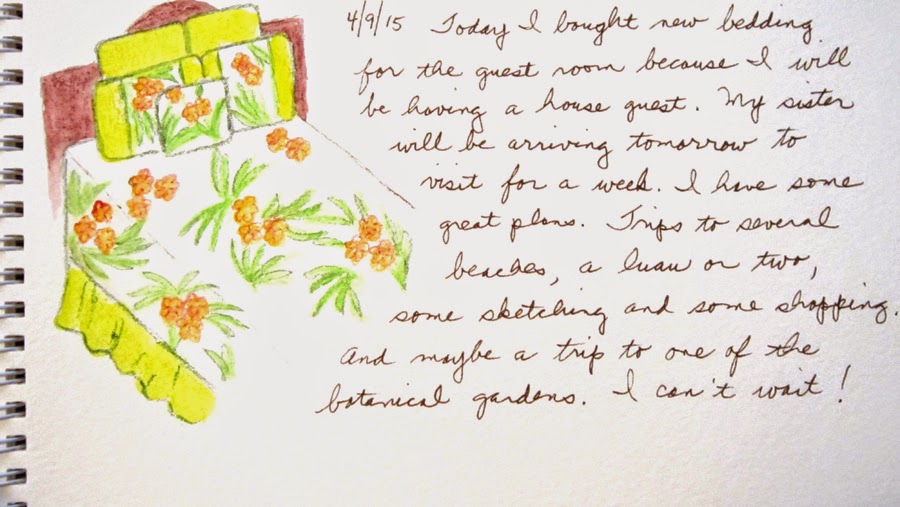 4/9/15 Today I bought new bedding
for the guest room because I will
be having a house guest. My sister
will be arriving tomorrow to
visit for a week. I have some
great plans. Trips to several
beaches, a luau or two,
some sketching and some shopping.
And maybe a trip to one of the
botanical gardens. I can't wait!